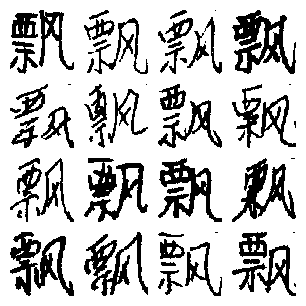 飘飘飘飘
飘飘飘飘
飘飘飘飘
飘飘飘飘